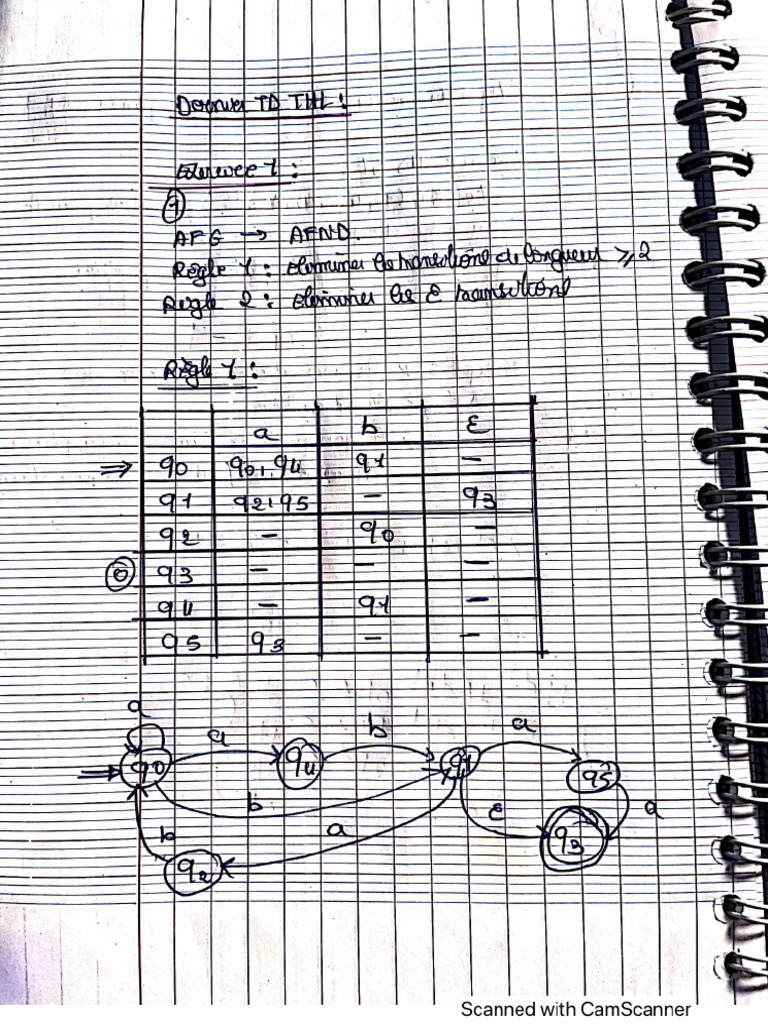 TD THL :
Exercice 1 :
①
AFG → AFND.
Règle 1 : eliminer les transitions de longueur ≥ 2
Règle 2 : eliminer les ε transitions
Règle 1 :
a b ε
⇒ q0 q0, q4 q1 —
q1 q2, q5 — q3
q2 — q0 —
q3 — — —
q4 — q1 —
q5 q3 — —
a
a b a
⇒ q0 q4 q1 q5
b ε a
b a q3
q2
Scanned with CamScanner